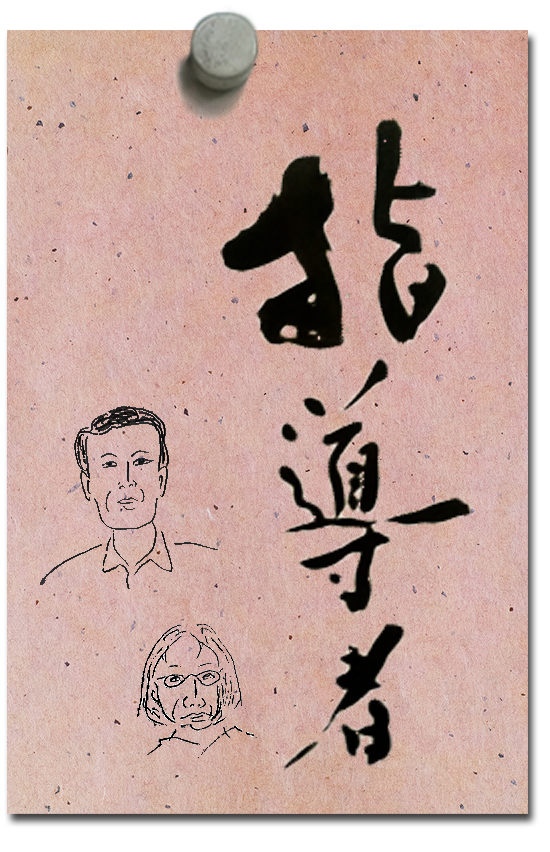 指導者